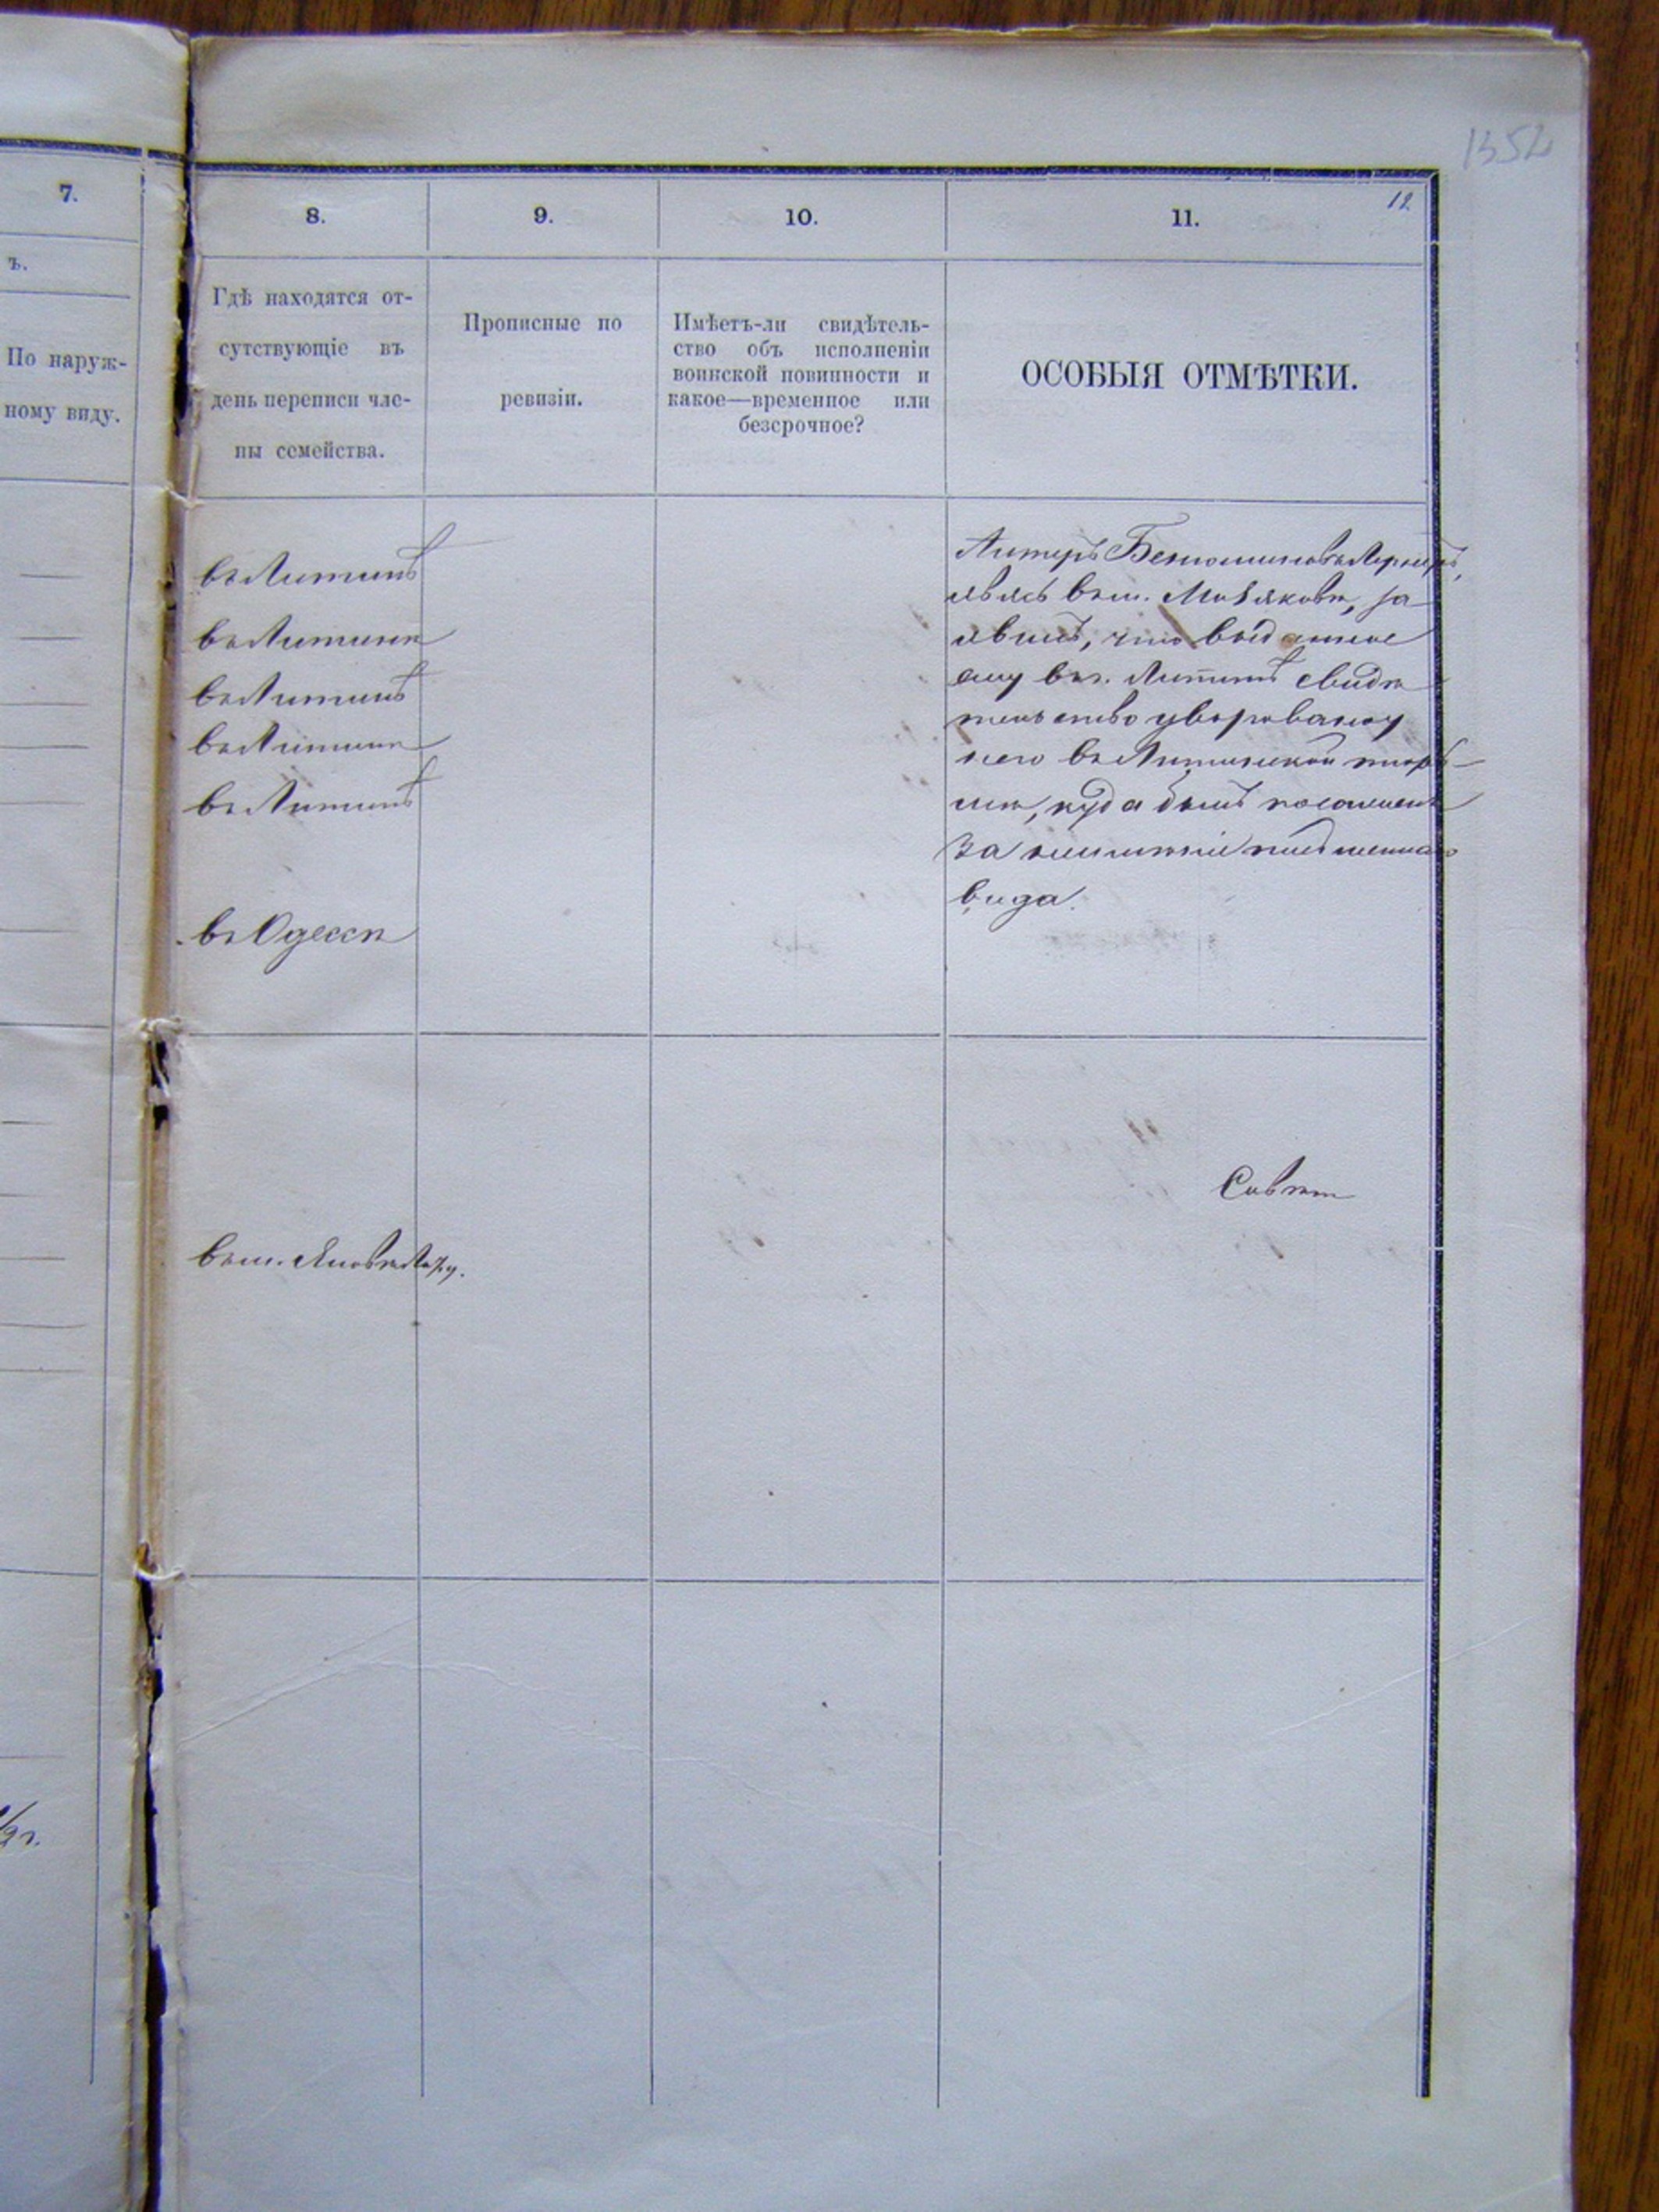 1352
7.
8.
9.
10.
11.
12
ъ.
По наруж-
ному виду.
Гдѣ находятся от-
сутствующіе въ
день переписи чле-
ны семейства.
Прописные по
ревизіи.
Имѣетъ-ли свидѣтель-
ство объ исполненіи
воинской повинности и
какое—временное или
безсрочное?
ОСОБЫЯ ОТМѢТКИ.
въ Литинѣ
въ Литинѣ
въ Литинѣ
въ Литинѣ
въ Литинѣ
въ Одессѣ
въ м.
Беніоминовъ Лернеръ,
въ м. за
явилъ, что выданное
ему въ г. Литинѣ свидѣ
тельство уворовано у
него въ Литинской тюрь
мѣ, куда былъ посаженъ
за неимѣніе письменнаго
вида.